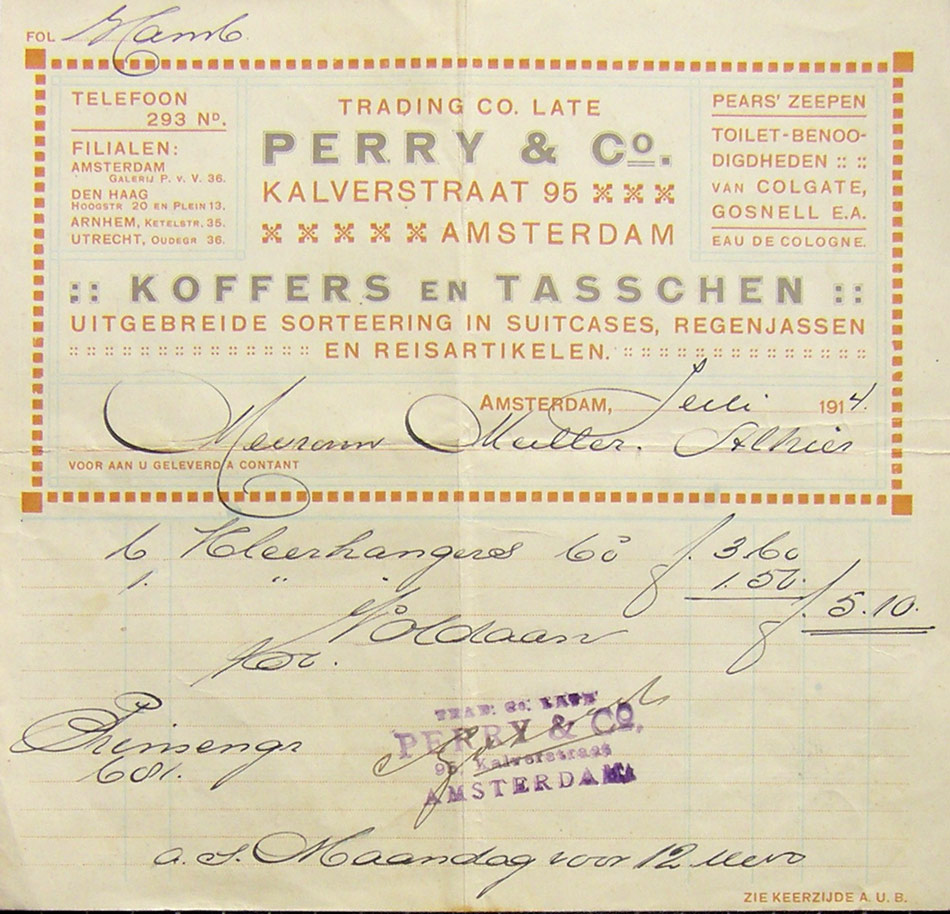 FOL
TELEFOON
293 ND.
FILIALEN:
AMSTERDAM
GALERIJ P. v. V. 36.
DEN HAAG
HOOGSTR 20 EN PLEIN 13.
ARNHEM, KETELSTR. 35.
UTRECHT, OUDEGR 36.
TRADING CO. LATE
PERRY & Co.
KALVERSTRAAT 95
AMSTERDAM
PEARS' ZEEPEN
TOILET-BENOO-
DIGDHEDEN :: ::
VAN COLGATE,
GOSNELL E.A.
EAU DE COLOGNE.
:: KOFFERS EN TASSCHEN ::
UITGEBREIDE SORTEERING IN SUITCASES, REGENJASSEN
EN REISARTIKELEN.
AMSTERDAM, Juli 1914.
Mevrouw Muller. Alhier
VOOR AAN U GELEVERD A CONTANT
6 Kleerhangers 60 f. 3.60
1. " " 1.50. f. 5.10.
Voldaan
Prinsengr
681.
TRAD. Co. LATE
PERRY & Co.
95, Kalverstraat
AMSTERDAM
a.s. Maandag voor 12 uur
ZIE KEERZIJDE A.U.B.